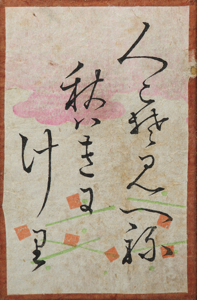 人こ楚見えね
秋はきに
けり